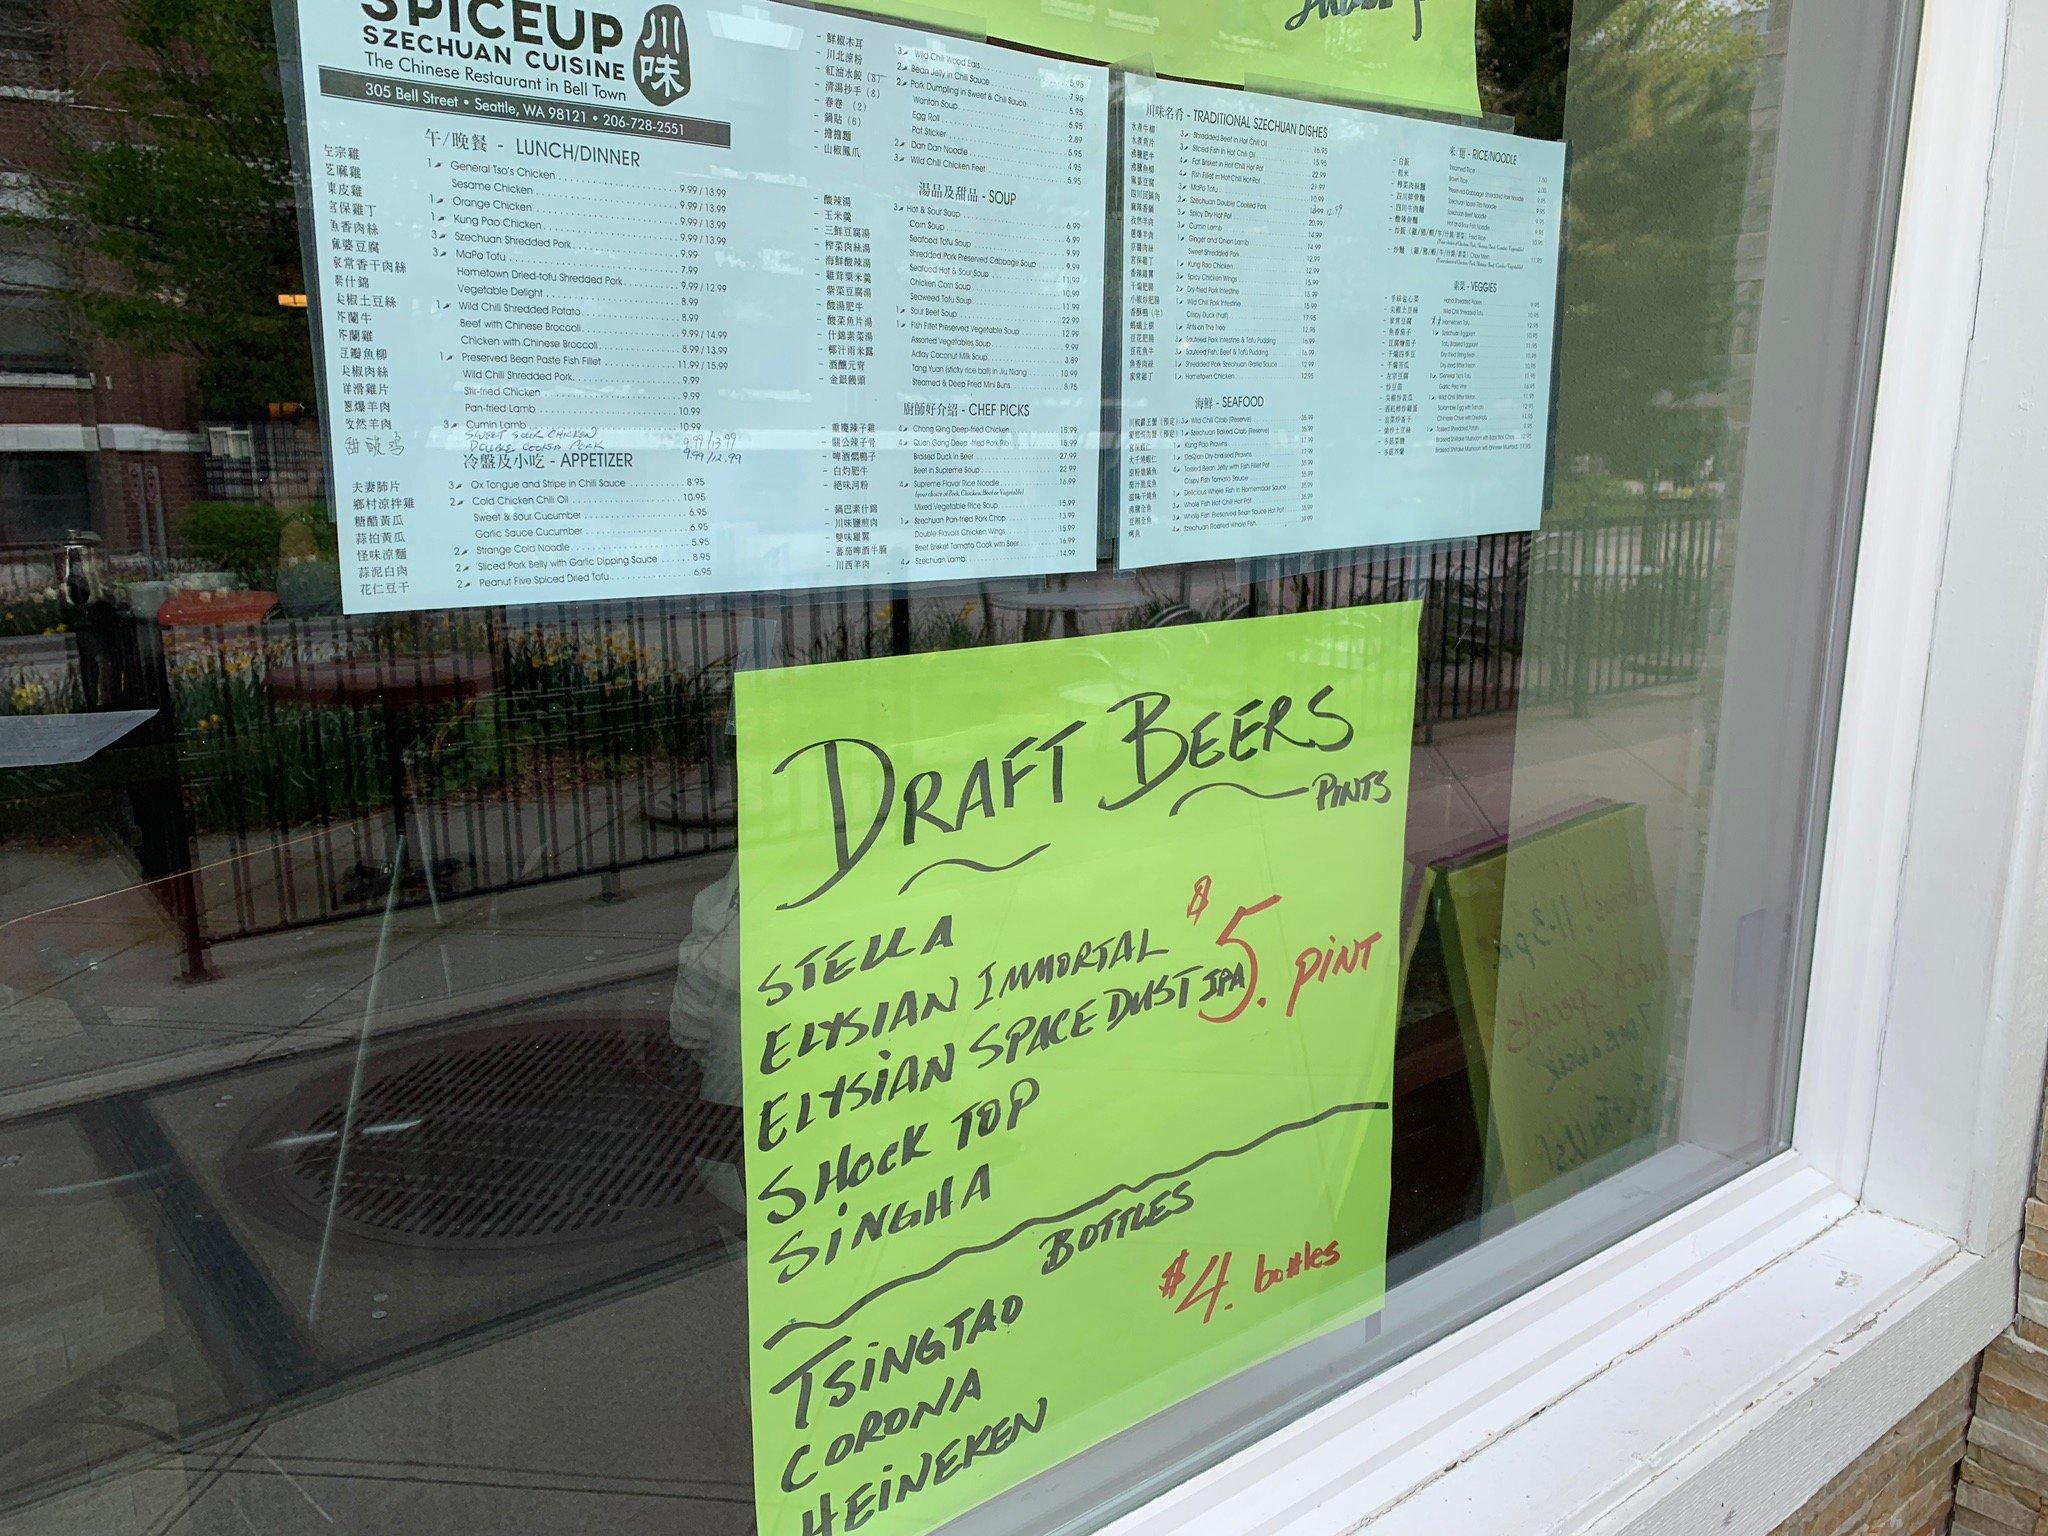 SPICEUP
SZECHUAN CUISINE
川味
The Chinese Restaurant in Bell Town
305 Bell Street • Seattle, WA 98121 • 206-728-2551
午/晚餐 - LUNCH/DINNER
左宗雞 1 General Tso's Chicken 9.99 / 13.99
芝麻雞 Sesame Chicken 9.99 / 13.99
陳皮雞 1 Orange Chicken 9.99 / 13.99
宮保雞丁 1 Kung Pao Chicken 9.99 / 13.99
魚香肉絲 3 Szechuan Shredded Pork 9.99
麻婆豆腐 3 MaPo Tofu 7.99
家常香干肉絲 Hometown Dried-tofu Shredded Pork 9.99 / 12.99
素什錦 Vegetable Delight 8.99
尖椒土豆絲 1 Wild Chili Shredded Potato 8.99
芥蘭牛 Beef with Chinese Broccoli 9.99 / 14.99
芥蘭雞 Chicken with Chinese Broccoli 8.99 / 13.99
豆瓣魚柳 1 Preserved Bean Paste Fish Fillet 11.99 / 15.99
尖椒肉絲 Wild Chili Shredded Pork 9.99
鮮滑雞片 Stir-fried Chicken 9.99
蔥爆羊肉 Pan-fried Lamb 10.99
孜然羊肉 3 Cumin Lamb 10.99
甜酸鸡 SWEET SOUR CHICKEN 9.99/13.99
DOUBLE COOKED PORK 9.99/12.99
冷盤及小吃 - APPETIZER
夫妻肺片 3 Ox Tongue and Stripe in Chili Sauce 8.95
鄉村涼拌雞 2 Cold Chicken Chili Oil 10.95
糖醋黃瓜 Sweet & Sour Cucumber 6.95
蒜拍黃瓜 Garlic Sauce Cucumber 6.95
怪味涼麵 2 Strange Cold Noodle 5.95
蒜泥白肉 2 Sliced Pork Belly with Garlic Dipping Sauce 8.95
花仁豆干 2 Peanut Five Spiced Dried Tofu 6.95
- 鮮椒木耳 3 Wild Chili Wood Ears 5.95
- 川北涼粉 2 Bean Jelly in Chili Sauce 7.95
- 紅油水餃 (8) 2 Pork Dumpling in Sweet & Chili Sauce 5.95
- 清湯抄手 (8) Wonton Soup 5.95
- 春卷 (2) Egg Roll 2.89
- 鍋貼 (6) Pot Sticker 5.95
- 擔擔麵 2 Dan Dan Noodle 4.95
- 山椒鳳爪 3 Wild Chili Chicken Feet 5.95
湯品及甜品 - SOUP
- 酸辣湯 3 Hot & Sour Soup 6.99
- 玉米羹 Corn Soup 6.99
- 三鮮豆腐湯 Seafood Tofu Soup 9.99
- 榨菜肉絲湯 Shredded Pork Preserved Cabbage Soup 9.99
- 海鮮酸辣湯 Seafood Hot & Sour Soup 11.99
- 雞茸粟米羹 Chicken Corn Soup 10.99
- 紫菜豆腐湯 Seaweed Tofu Soup 11.99
- 酸湯肥牛 1 Sour Beef Soup 22.99
- 酸菜魚片湯 1 Fish Fillet Preserved Vegetable Soup 12.99
- 什錦素菜湯 Assorted Vegetables Soup 9.99
- 椰汁雨米露 Aday Coconut Milk Soup 3.89
- 酒釀元宵 Tang Yuan (sticky rice ball) in Jiu Niang 10.99
- 金銀饅頭 Steamed & Deep Fried Mini Buns 8.75
廚師好介紹 - CHEF PICKS
- 重慶辣子雞 4 Chong Qing Deep-fried Chicken 15.99
- 關公辣子骨 4 Quan Gong Deep-fried Pork Rib 15.99
- 啤酒燜鴨子 Braised Duck in Beer 27.99
- 白灼肥牛 Beef in Supreme Sauce 22.99
- 絕味河粉 4 Supreme Flavor Rice Noodle 16.99
(your choice of Pork, Chicken, Beef or Vegetable)
- 鍋巴素什錦 Mixed Vegetable Rice Soup 15.99
- 川味鹽煎肉 1 Szechuan Pan-fried Pork 13.99
- 雙味雞翼 Double Flavors Chicken Wings 15.99
- 蕃茄啤酒牛腩 Beef Brisket Tomato Cook with Beer 16.99
- 川西羊肉 4 Szechuan Lamb 14.99
川味名肴 - TRADITIONAL SZECHUAN DISHES
水煮牛柳 3 Shredded Beef in Hot Chili Oil 16.95
水煮魚片 3 Sliced Fish in Hot Chili Oil 15.95
沸騰肥牛 4 Fat Brisket in Hot Chili Hot Pot 22.99
沸騰魚柳 4 Fish Fillet in Hot Chili Hot Pot 21.99
麻婆豆腐 3 MaPo Tofu 10.99
四川回鍋肉 2 Szechuan Double Cooked Pork 12.99
麻辣香鍋 3 Spicy Dry Hot Pot 20.99
孜然羊肉 3 Cumin Lamb 14.99
蔥爆羊肉 1 Ginger and Onion Lamb 14.99
京醬肉絲 Sweet Shredded Pork 12.99
宮保雞丁 1 Kung Pao Chicken 12.99
香辣雞翼 3 Spicy Chicken Wings 15.99
干煸肥腸 2 Dry-fried Pork Intestine 15.99
小椒炒肥腸 1 Wild Chili Pork Intestine 15.99
香酥鴨 (半) Crispy Duck (half) 17.95
螞蟻上樹 1 Ants on The Tree 12.95
豆花肥腸 3 Sauteed Pork Intestine & Tofu Pudding 16.99
豆花魚牛 3 Sauteed Fish, Beef & Tofu Pudding 16.99
魚香肉絲 3 Shredded Pork Szechuan Garlic Sauce 12.99
家常雞丁 1 Hometown Chicken 12.95
海鮮 - SEAFOOD
3 Wild Chili Crab (Reserve) 35.99
3 Szechuan Baked Crab (Reserve) 35.99
宮保蝦仁 1 Kung Pao Prawns 17.99
大千燒蝦仁 1 DaQian Dry-braised Prawns 17.99
4 Tossed Bean Jelly with Fish Fillet Pot
Crispy Fish Tomato Sauce
1 Delicious Whole Fish in Homemade Sauce 35.99
3 Whole Fish Hot Chili Hot Pot 35.99
3 Whole Fish Preserved Bean Sauce Hot Pot 35.99
烤魚 4 Szechuan Roasted Whole Fish 39.99
米/麵 - RICE/NOODLE
- 白飯 Steamed Rice 1.50
- 糙米 Brown Rice 2.00
- 榨菜肉絲麵 Preserved Cabbage Shredded Pork Noodle 9.95
- 四川排骨麵 Szechuan Spare Rib Noodle 9.95
- 四川牛肉麵 Szechuan Beef Noodle 9.95
- 酸辣魚麵 Hot and Sour Fish Noodle 9.95
- 炒飯 Fried Rice 10.95
- 炒麵 Chow Mein 11.95
素菜 - VEGGIES
- 手絲包心菜 Hand Shredded Pickles 9.95
- 尖椒土豆絲 Wild Chili Shredded Tofu 10.95
- 家常豆腐 Hometown Tofu 12.95
- 魚香茄子 1 Szechuan Eggplant 10.95
- 豆腐燴茄子 Tofu Braised Eggplant 11.95
- 干煸四季豆 Dry-fried String Bean 10.95
- 干煸苦瓜 Dry-fried Bitter Melon 10.95
- 左宗豆腐 1 General Tso's Tofu 11.95
- 炒豆苗 Garlic Pea Vine 16.95
- 尖椒炒苦瓜 1 Wild Chili Bitter Melon 11.95
- 西紅柿炒雞蛋 Scramble Egg with Tomato 12.95
- 韭菜炒香干 Chinese Chive with Dried-tofu 11.95
- 熗炒土豆絲 1 Toasted Shredded Potato 9.95
- 冬菇菜膽 Braised Shiitake Mushroom with Baby Bok Choy 12.95
- 冬菇芥蘭 Braised Shiitake Mushroom with Chinese Mustard
DRAFT BEERS
PINTS
STELLA
ELYSIAN IMMORTAL
ELYSIAN SPACE DUST IPA
$5. PINT
SHOCK TOP
SINGHA
BOTTLES
$4. bottles
TSINGTAO
CORONA
HEINEKEN